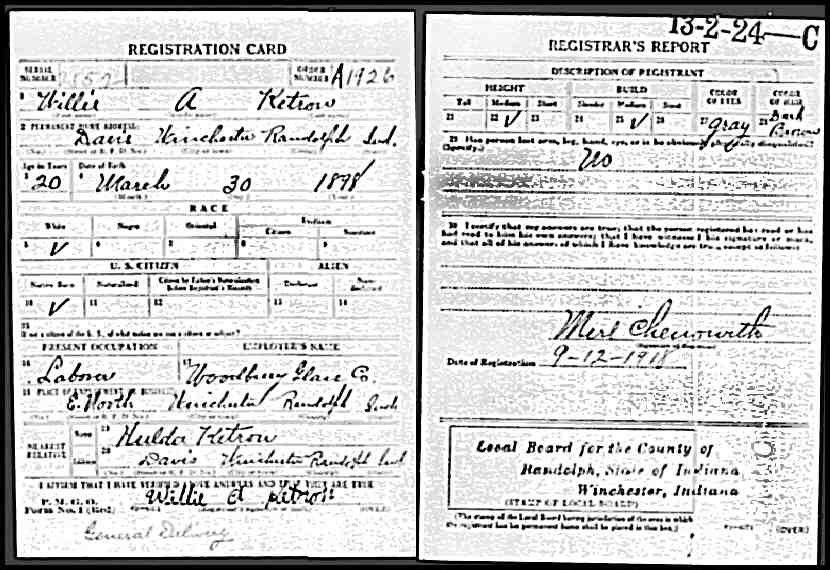 REGISTRATION CARD
SERIAL NUMBER
ORDER NUMBER A1926
1 Willie A Ketrow
2 PERMANENT HOME ADDRESS:
Davis Winchester Randolph Ind.
Age in Years
Date of Birth
3 20 4 March 30 1898
RACE
White Negro Oriental Indian
Citizen Noncitizen
5 ✓ 6 7 8 9
U. S. CITIZEN ALIEN
Native Born Naturalized Citizen by Father's Naturalization Before Registrant's Majority Declarant Non-declarant
10 ✓ 11 12 13 14
15
If not a citizen of the U. S., of what nation are you a citizen or subject?
PRESENT OCCUPATION EMPLOYER'S NAME
16 Laborer 17 Woodbury Glass Co.
18 PLACE OF EMPLOYMENT OR BUSINESS:
E. North Winchester Randolph Ind.
NEAREST RELATIVE
Name 19 Hulda Ketrow
Address 20 Davis Winchester Randolph Ind
I AFFIRM THAT I HAVE VERIFIED ABOVE ANSWERS AND THAT THEY ARE TRUE
P. M. G. O.
Form No. 1 (Red) Willie A Ketrow (OVER)
General Delivery
13-2-24—C
REGISTRAR'S REPORT
DESCRIPTION OF REGISTRANT
HEIGHT BUILD COLOR OF EYES COLOR OF HAIR
Tall Medium Short Slender Medium Stout
21 22 ✓ 23 24 25 ✓ 26 27 gray 28 Dark Brown
29 Has person lost arm, leg, hand, eye, or is he obviously physically disqualified?
(Specify.) No
30 I certify that my answers are true; that the person registered has read or has
had read to him his own answers; that I have witnessed his signature or mark,
and that all of his answers of which I have knowledge are true, except as follows:
Merl Chenowith
Date of Registration 9-12-1918
Local Board for the County of
Randolph, State of Indiana
Winchester, Indiana
(STAMP OF LOCAL BOARD)
(The stamp of the Local Board having jurisdiction of the area in which
the registrant has his permanent home shall be placed in this box.)
(OVER)